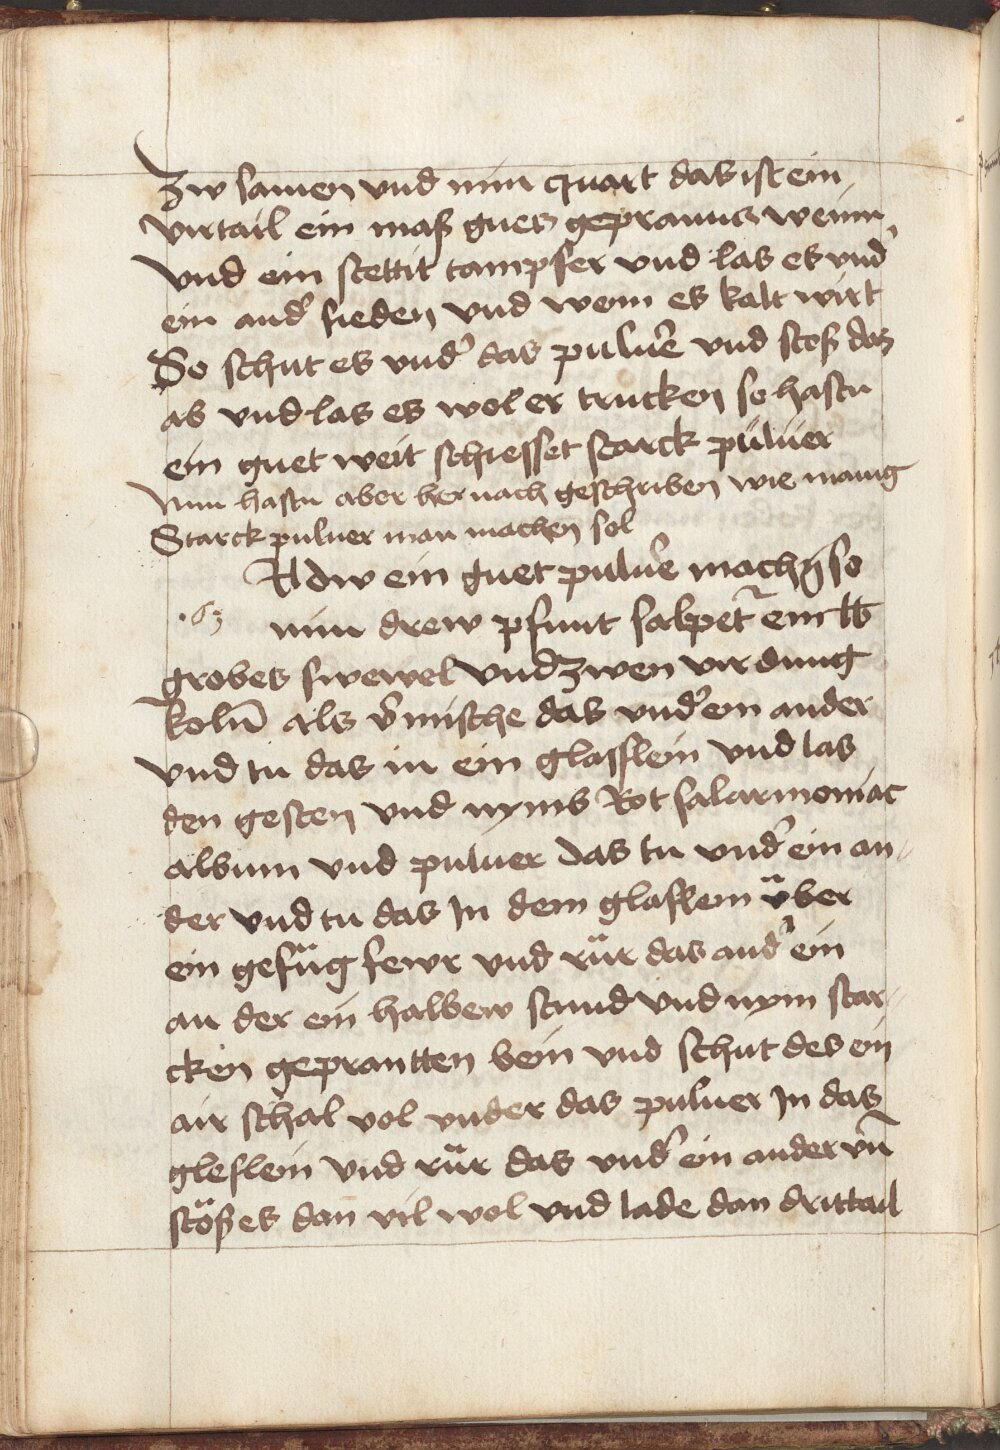 Zw samen vnd nim quart das ist ein
virtail ein mass guets geprannts weinn
vnd ein stettit campfer vnd las es vnd'
ein and' sieden vnd wenn es kalt wirt
So schut es vnd' das pulu'e vnd stoss das
ab vnd las es wol er trucken so hastu
ein guet weit schiesset starck püluer
Nun hastu aber her nach geschriben wie manig
Starck puluer man machen sol
Wildw ein guet pulu'e mach so
.63
nim drew pfunt salpet' ein lb
grobes swewel vnd zwen virdung
kolñ als v'mische das vnd' ein ander
vnd tu das in ein glasslein vnd las
den gesten vnd nyms Rot salarmoniac
album vnd puluer das tu vnd' ein an
der vnd tu das In dem glaslein über
ein gefüg fewr vnd rür das and' ein
an der ein halbew stund vnd nym star
cken geprantten bein vnd schut des ein
air schal vol vnder das puluer In das
gleslein vnd rür das vnd' ein ander vñ
stöss es dan vil wol vnd lade dan drittail